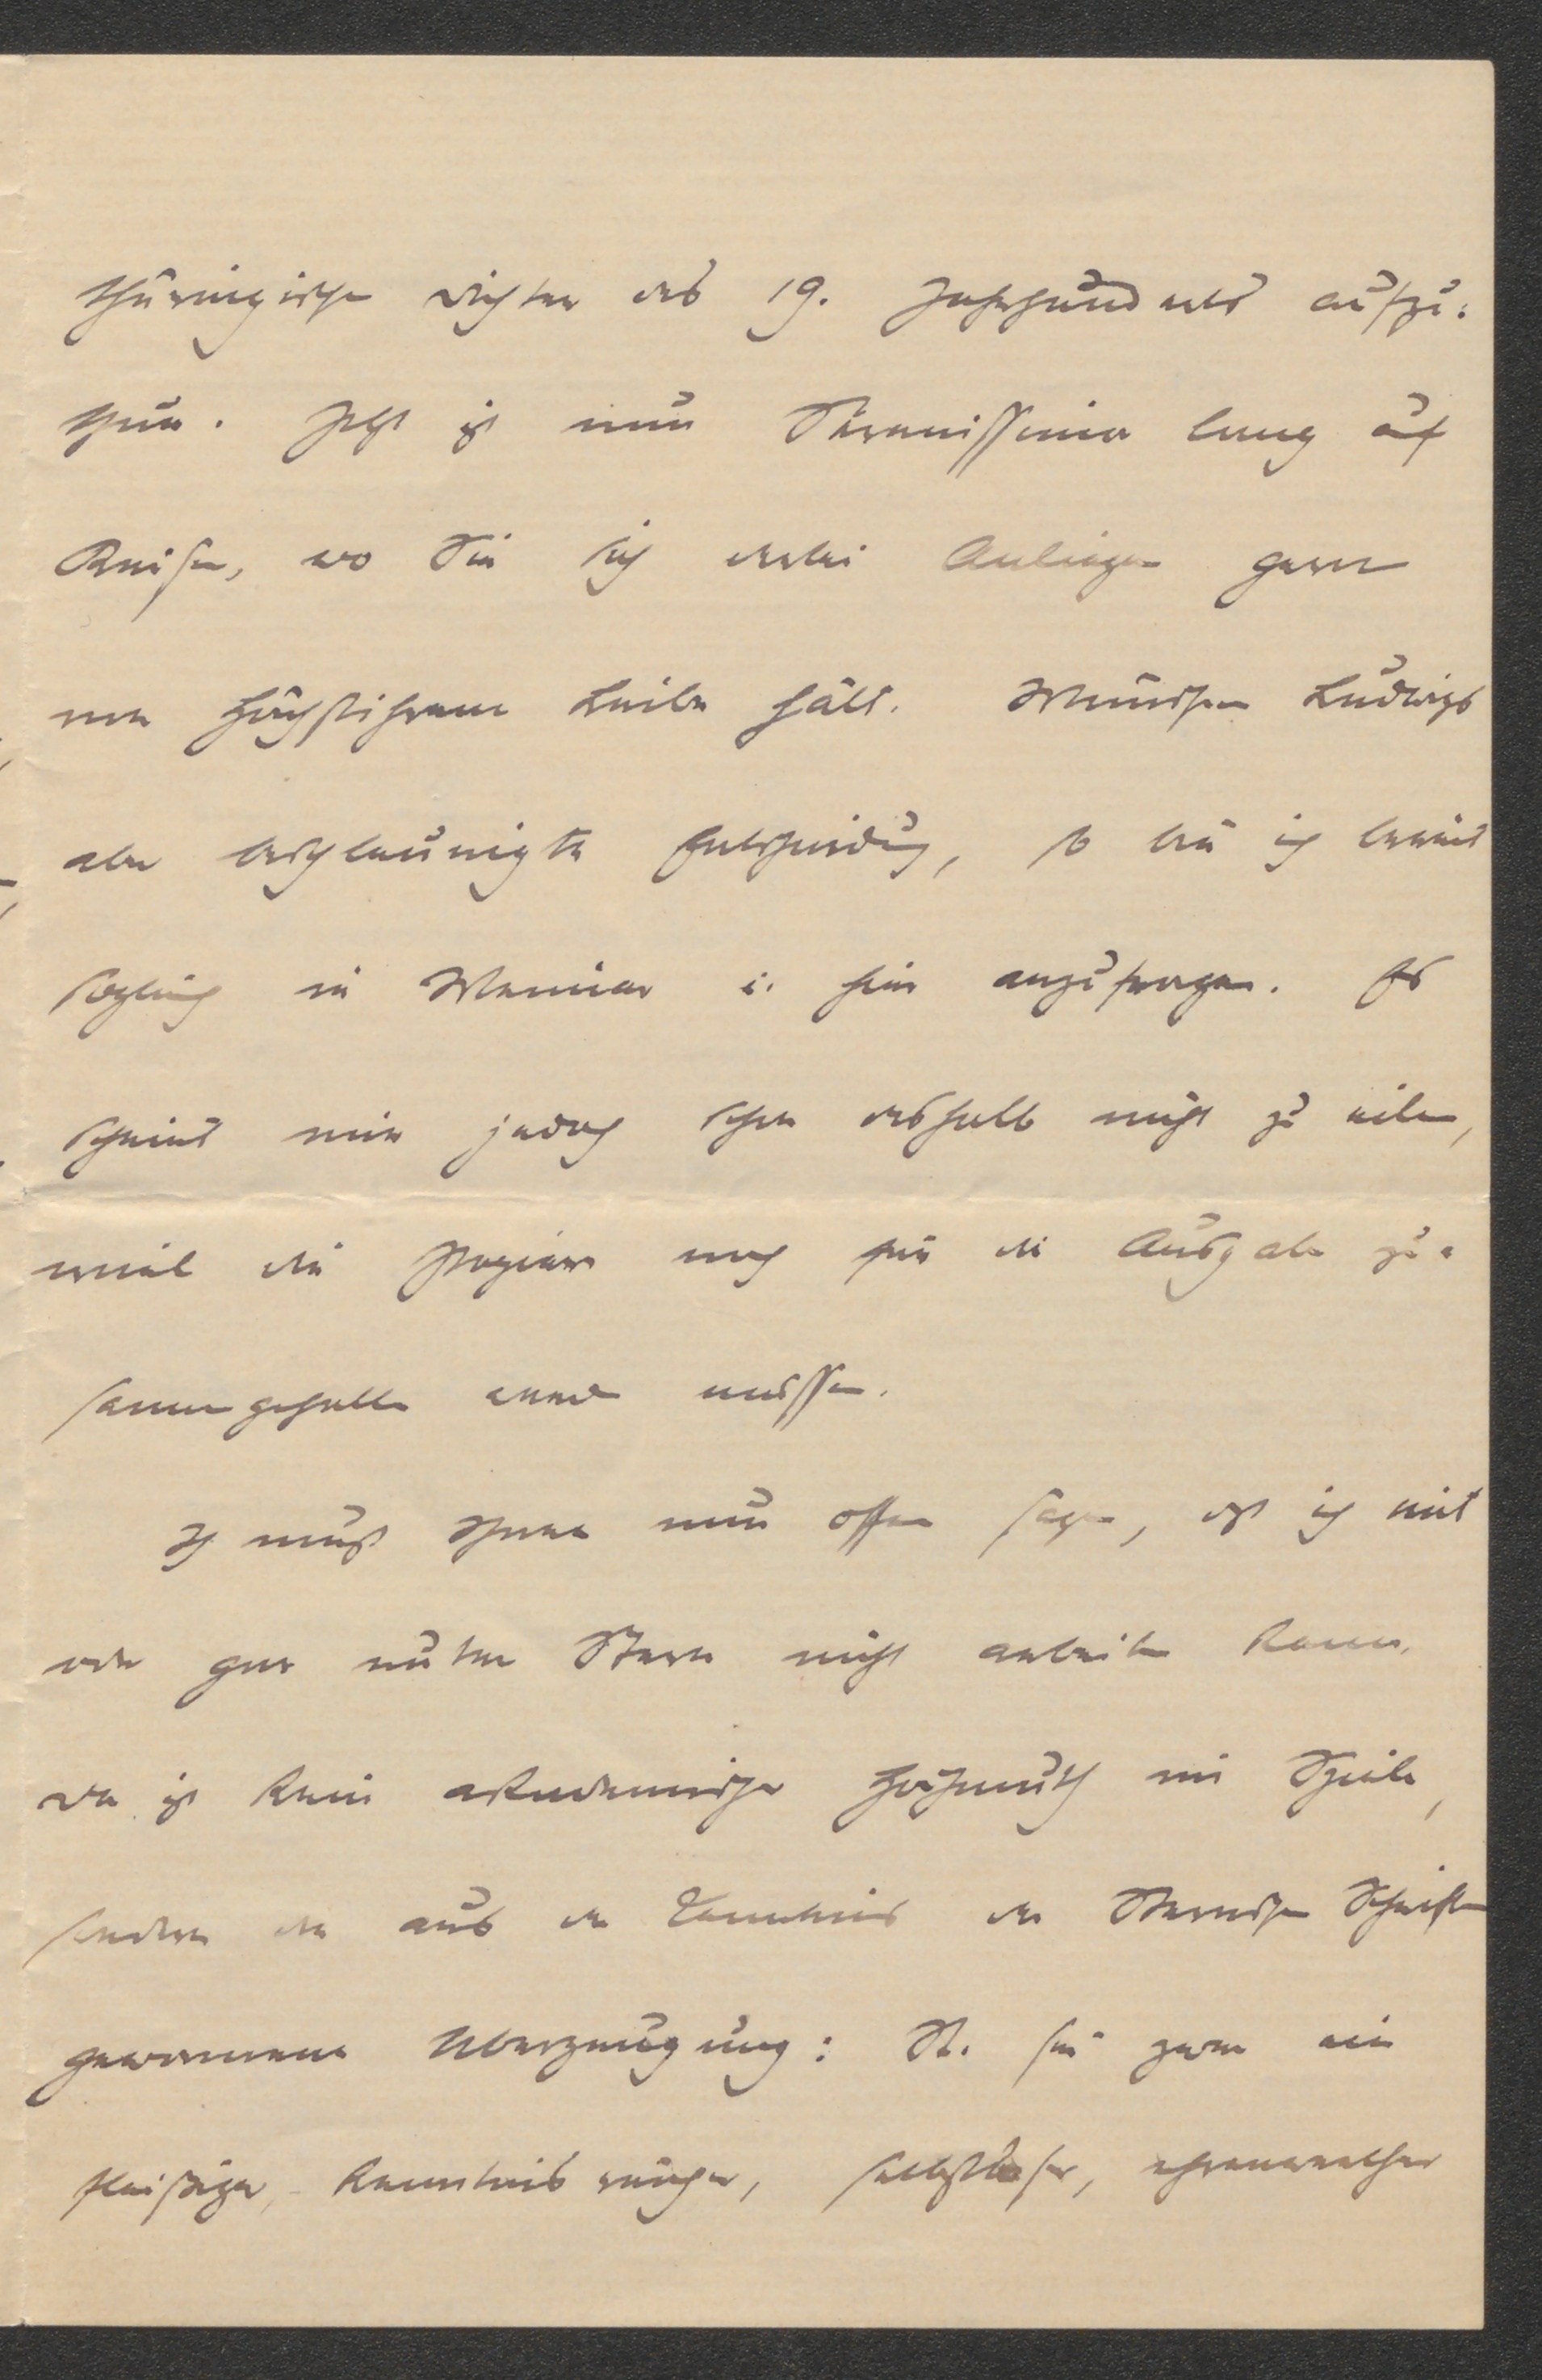 thüringische Dichter des 19. Jahrhunderts aufzu-
thun. Jetzt ist nun Serenissima lang auf
Reisen, wo Sie sich derlei Anliegen gern
vom höchstihrem Leibe hält. Wünschen Ludwigs
aber beschleunigte Entscheidung, so bin ich bereit
sogleich in Weimar u. hier anzufragen. Es
scheint mir jedoch schon deshalb nicht zu eilen,
weil die Papiere noch für die Ausgabe zu-
sammengehalten werden müssen.
Ich muß Ihnen nun offen sagen, daß ich mit
oder gar unter Stern nicht arbeiten kann.
Da ist kein akademischer Hochmuth im Spiele,
sondern die aus der Kenntnis der Sternschen Schriften
gewonnene Überzeugung: St. sei zwar ein
fleißiger, kenntnisreicher, selbstloser, ehrenwerther